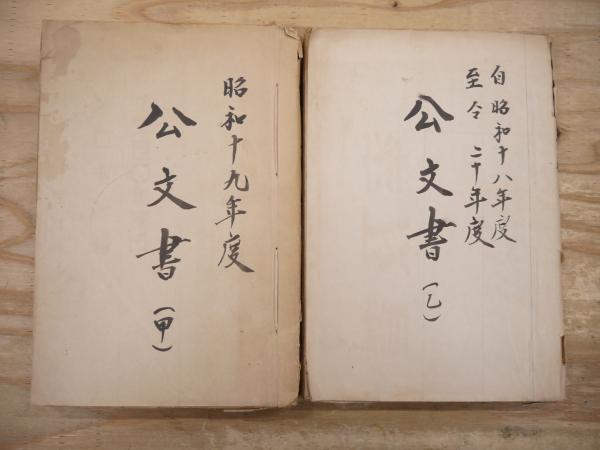 昭和十九年度
公文書
(甲)
自昭和十八年度
至仝二十年度
公文書
(乙)